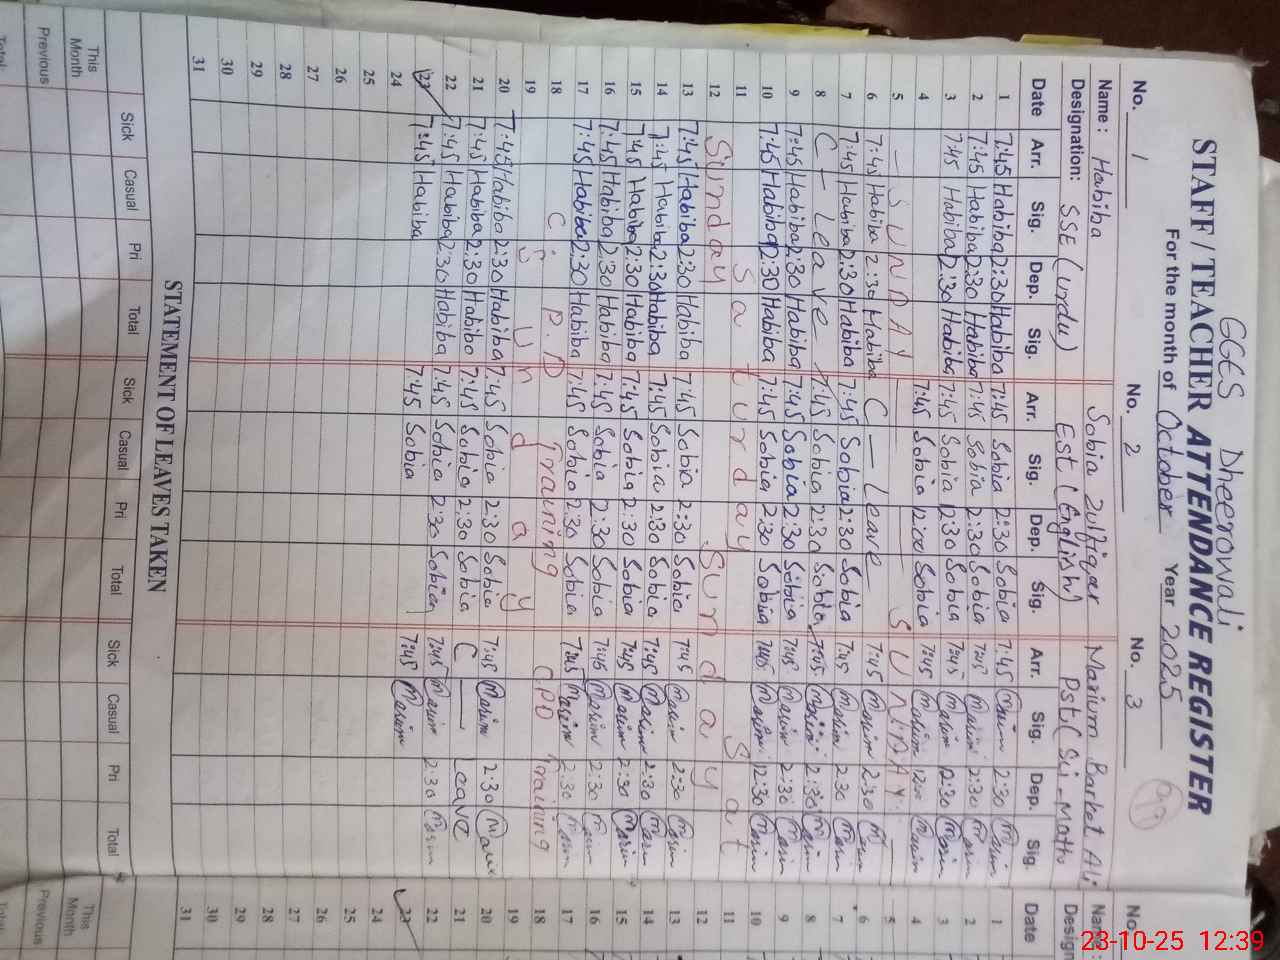 GGES Dheerowali
STAFF / TEACHER ATTENDANCE REGISTER
For the month of October Year 2025
No. 1 No. 2 No. 3 No.
Name: Habiba Sobia Zulfiqar Marium Barket Ali Name:
Designation: SSE (Urdu) Est (English) Pst (Sci-Math Design
Date Arr. Sig. Dep. Sig. Arr. Sig. Dep. Sig. Arr. Sig. Dep. Sig. Date
1 7:45 Habiba 2:30 Habiba 7:45 Sobia 2:30 Sobia 7:45 2:30 1
2 7:45 Habiba 2:30 Habiba 7:45 Sobia 2:30 Sobia 7:45 2:30 2
3 7:45 Habiba 2:30 Habiba 7:45 Sobia 2:30 Sobia 7:45 2:30 3
4 7:45 Sobia 12:00 Sobia 7:45 12:00 4
5 SUNDAY SUNDAY 5
6 7:45 Habiba 2:30 Habiba C - Leave 7:45 2:30 6
7 7:45 Habiba 2:30 Habiba 7:45 Sobia 2:30 Sobia 7:45 2:30 7
8 C - Leave 7:45 Sobia 2:30 Sobia 7:45 2:30 8
9 7:45 Habiba 2:30 Habiba 7:45 Sobia 2:30 Sobia 7:45 2:30 9
10 7:45 Habiba 2:30 Habiba 7:45 Sobia 2:30 Sobia 7:45 2:30 10
11 Saturday Sat 11
12 Sunday Sunday 12
13 7:45 Habiba 2:30 Habiba 7:45 Sobia 2:30 Sobia 7:45 2:30 13
14 7:45 Habiba 2:30 Habiba 7:45 Sobia 2:30 Sobia 7:45 2:30 14
15 7:45 Habiba 2:30 Habiba 7:45 Sobia 2:30 Sobia 7:45 2:30 15
16 7:45 Habiba 2:30 Habiba 7:45 Sobia 2:30 Sobia 7:45 2:30 16
17 7:45 Habiba 2:30 Habiba 7:45 Sobia 2:30 Sobia 7:45 2:30 17
18 C.P.D Training CPD Training 18
19 Sunday 19
20 7:45 Habiba 2:30 Habiba 7:45 Sobia 2:30 Sobia 7:45 2:30 20
21 7:45 Habiba 2:30 Habiba 7:45 Sobia 2:30 Sobia C - Leave 21
22 7:45 Habiba 2:30 Habiba 7:45 Sobia 2:30 Sobia 7:45 2:30 22
23 7:45 Habiba 7:45 Sobia 7:45 23
24 24
25 25
26 26
27 27
28 28
29 29
30 30
31 31
STATEMENT OF LEAVES TAKEN
Sick Casual Pri Total Sick Casual Pri Total Sick Casual Pri Total
This Month This Month
Previous Previous
Total Total
23-10-25 12:39